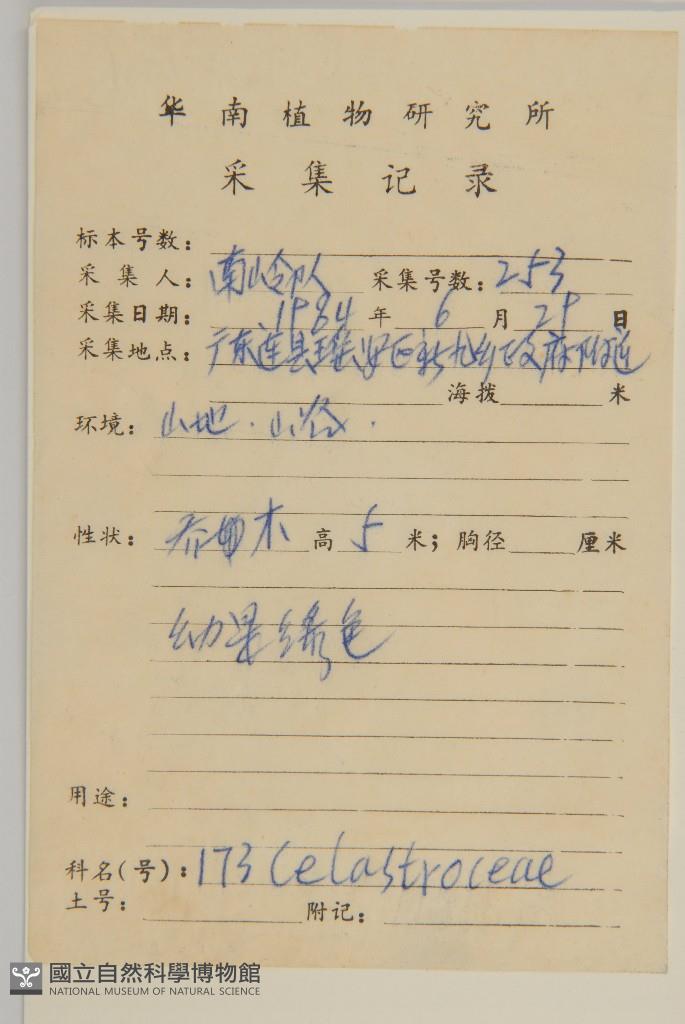 华南植物研究所
采集记录
标本号数：
采集人：南岭队 采集号数：253
采集日期：1984年6月29日
采集地点：广东连县瑶安区九乡区政府附近
海拨 米
环境：山地.山谷.
性状：乔木 高5米；胸径 厘米
幼果绿色
用途：
科名(号)：173 Celastroceae
土号： 附记：
國立自然科學博物館
NATIONAL MUSEUM OF NATURAL SCIENCE